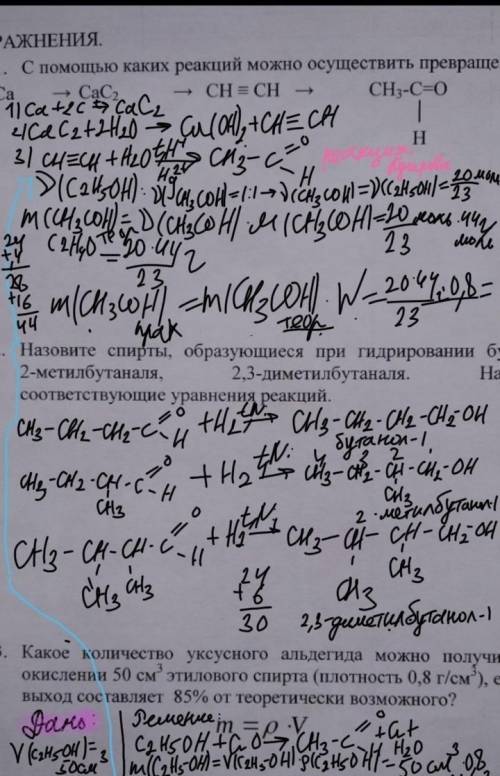 РАЖНЕНИЯ.
С помощью каких реакций можно осуществить превраще
Ca → CaC₂ → CH ≡ CH → CH₃-C=O
H
1) Ca+2C → CaC₂
2) CaC₂+2H₂O → Ca(OH)₂+CH≡CH
3) CH≡CH + H₂O → CH₃-C
O
H
реакция Кучерова
ν(C₂H₅OH) : ν(CH₃COH)=1:1 → ν(CH₃COH)=ν(C₂H₅OH)=20/23 моль
m(CH₃COH)теор = ν(CH₃COH)·M(CH₃COH)=20/23 моль·44 г/моль
C₂H₄O
= 20·44/23 г
24
+4
28
+16
44
m(CH₃COH)прак = m(CH₃COH)теор. · W = 20·44/23·0,8 =
Назовите спирты, образующиеся при гидрировании бу
2-метилбутаналя, 2,3-диметилбутаналя. На
соответствующие уравнения реакций.
CH₃-CH₂-CH₂-C
O
H
+H₂ t,Ni → CH₃-CH₂-CH₂-CH₂-OH
бутанол-1
CH₃-CH₂-CH-C
O
H
+ H₂ t,Ni → CH₃-CH₂-CH-CH₂-OH
4 3 2
CH₃
CH₃
2-метилбутанол-1
CH₃-CH-CH-C
O
H
+H₂ t,Ni → CH₃-CH-CH-CH₂-OH
CH₃ CH₃
CH₃
CH₃
24
+6
30
2,3-диметилбутанол-1
3. Какое количество уксусного альдегида можно получи
окислении 50 см³ этилового спирта (плотность 0,8 г/см³), е
выход составляет 85% от теоретически возможного?
Дано:
Решение:
m = ρ · V
V(C₂H₅OH)=
50см³
C₂H₅OH+CuO → CH₃-C
O
H
+Cu+
H₂O
m(C₂H₅OH)=V(C₂H₅OH)·ρ(C₂H₅OH)=50 см³·0,8